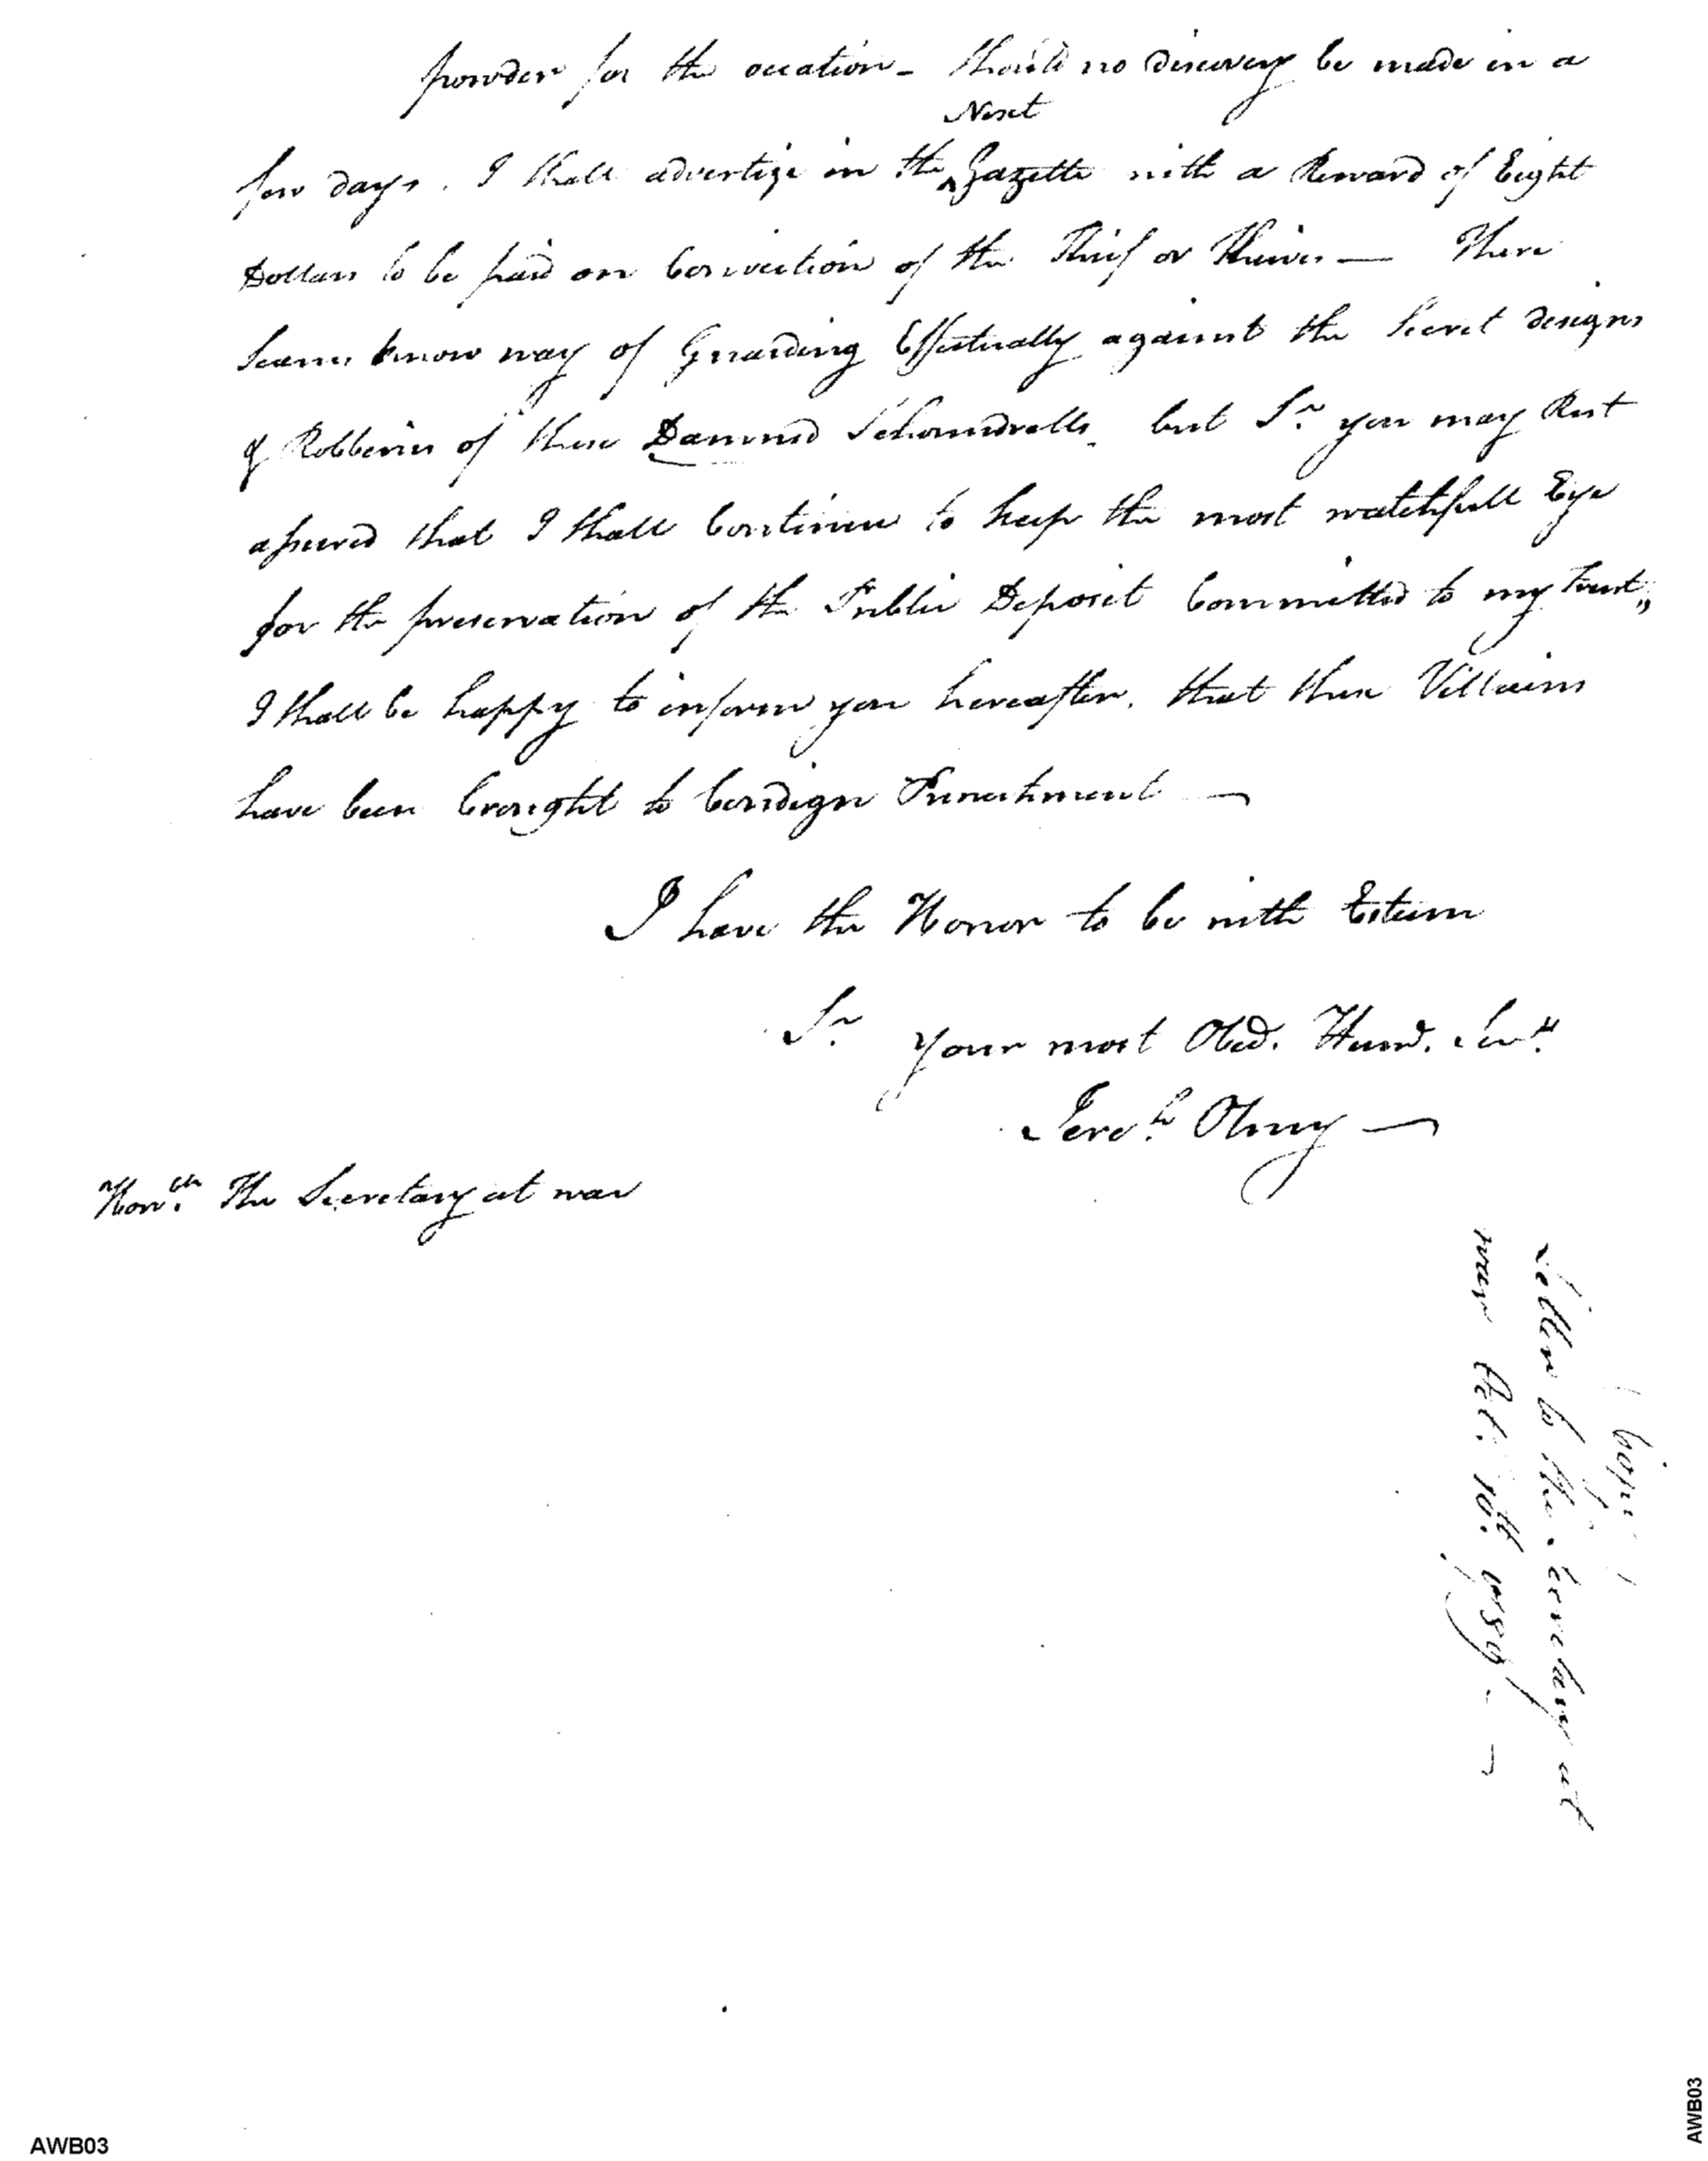 powder for the occation - should no discovery be made in a
Next
few days. I shall advertize in the ^ Gazette with a Reward of Eight
Dollars to be paid on Conviction of the Thief or Thieves — There
seams know way of Guarding Effectually against the Secret designs
& Robberies of these Damned Schoundrells. but Sr. you may Rest
assured that I shall Continue to keep the most watchfull Eye
for the preservation of the Public Deposit Committed to my trust,,
I shall be happy to inform you hereafter. that these Villains
have been brought to Condign Punishment —
I have the Honor to be with Esteem
Sr. your most Obed. Hum. Servt.
Jereh. Olney —
Honble. The Secretary at war
(Copy)
Letter to the Secretary at
war Oct. 10th. 1789. —
AWB03
AWB03